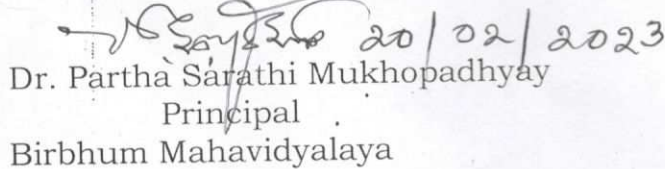 20/02/2023
Dr. Partha Sarathi Mukhopadhyay
Principal
Birbhum Mahavidyalaya